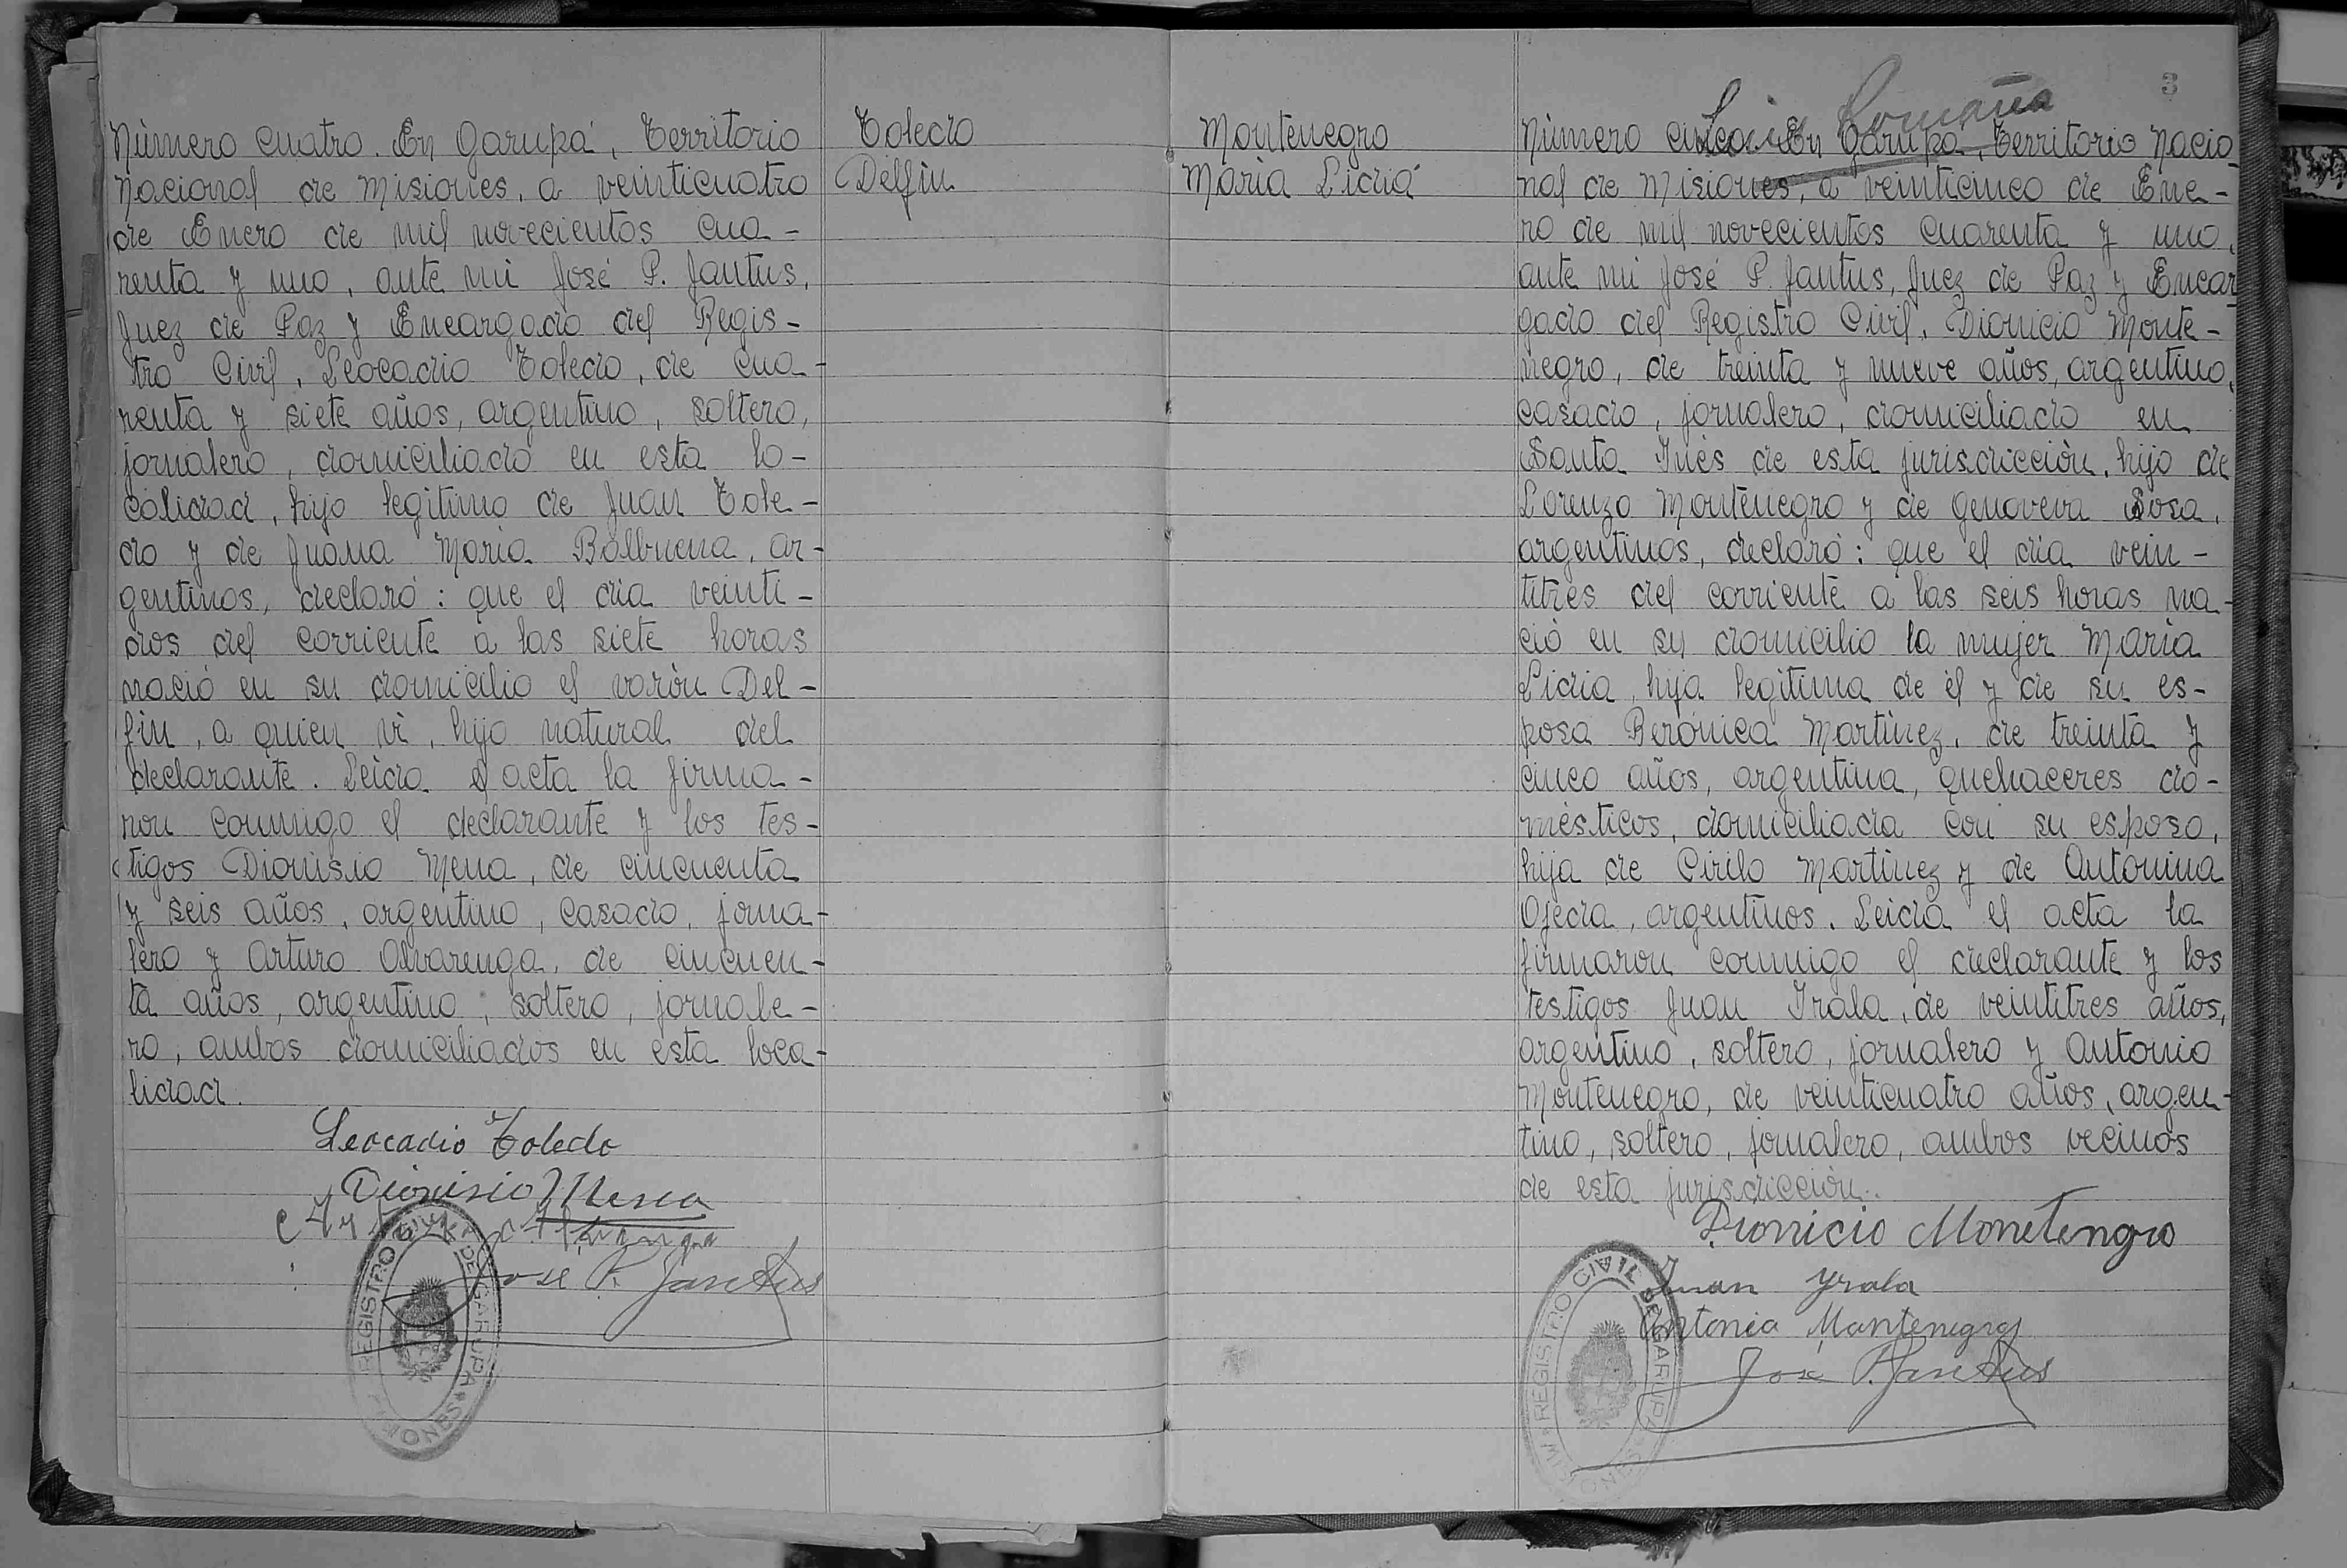 Número cuatro. En Garupá, Territorio
Nacional de Misiones, a veinticuatro
de Enero de mil novecientos cua-
renta y uno, ante mi José P. Jantus,
Juez de Paz y Encargado del Regis-
tro Civil, Leocadio Toledo, de cua-
renta y siete años, argentino, soltero,
jornalero, domiciliado en esta lo-
calidad, hijo legitimo de Juan Tole-
do y de Juana Maria Balbuena, ar-
gentinos, declaró: que el dia veinti-
dos del corriente a las siete horas
nació en su domicilio el varón Del-
fin, a quien vi, hijo natural del
declarante. Leida el acta la firma-
ron conmigo el declarante y los tes-
tigos Dionisio Mena, de cincuenta
y seis años, argentino, casado, jorna-
lero y Arturo Alvarenga, de cincuen-
ta años, argentino, soltero, jornale-
ro, ambos domiciliados en esta loca-
lidad.
Leocadio Toledo
Dionisio Mena
José P. Jantus
REGISTRO CIVIL DE GARUPA
MISIONES
Toledo
Delfin
Montenegro
Maria Lidia
3
Luis Romaña
Número cinco. En Garupá, Territorio Nacio
nal de Misiones, a veinticinco de Ene-
ro de mil novecientos cuarenta y uno,
ante mi José P. Jantus, Juez de Paz y Encar
gado del Registro Civil, Dionicio Monte-
negro, de treinta y nueve años, argentino,
casado, jornalero, domiciliado en
Santa Inés de esta jurisdicción, hijo de
Lorenzo Montenegro y de Genoveva Sosa,
argentinos, declaró: que el dia vein-
titrés del corriente a las seis horas na-
ció en su domicilio la mujer Maria
Lidia, hija legitima de él y de su es-
posa Berónica Martinez, de treinta y
cinco años, argentina, quehaceres do-
mésticos, domiciliada con su esposo,
hija de Cirilo Martinez y de Antonina
Ojeda, argentinos. Leida el acta la
firmaron conmigo el declarante y los
testigos Juan Irala, de veintitres años,
argentino, soltero, jornalero y Antonio
Montenegro, de veinticuatro años, argen-
tino, soltero, jornalero, ambos vecinos
de esta jurisdicción.
Dionicio Monetengro
Juan Yrala
Antonio Montenegro
José P. Jantus
REGISTRO CIVIL DE GARUPA
MISIONES